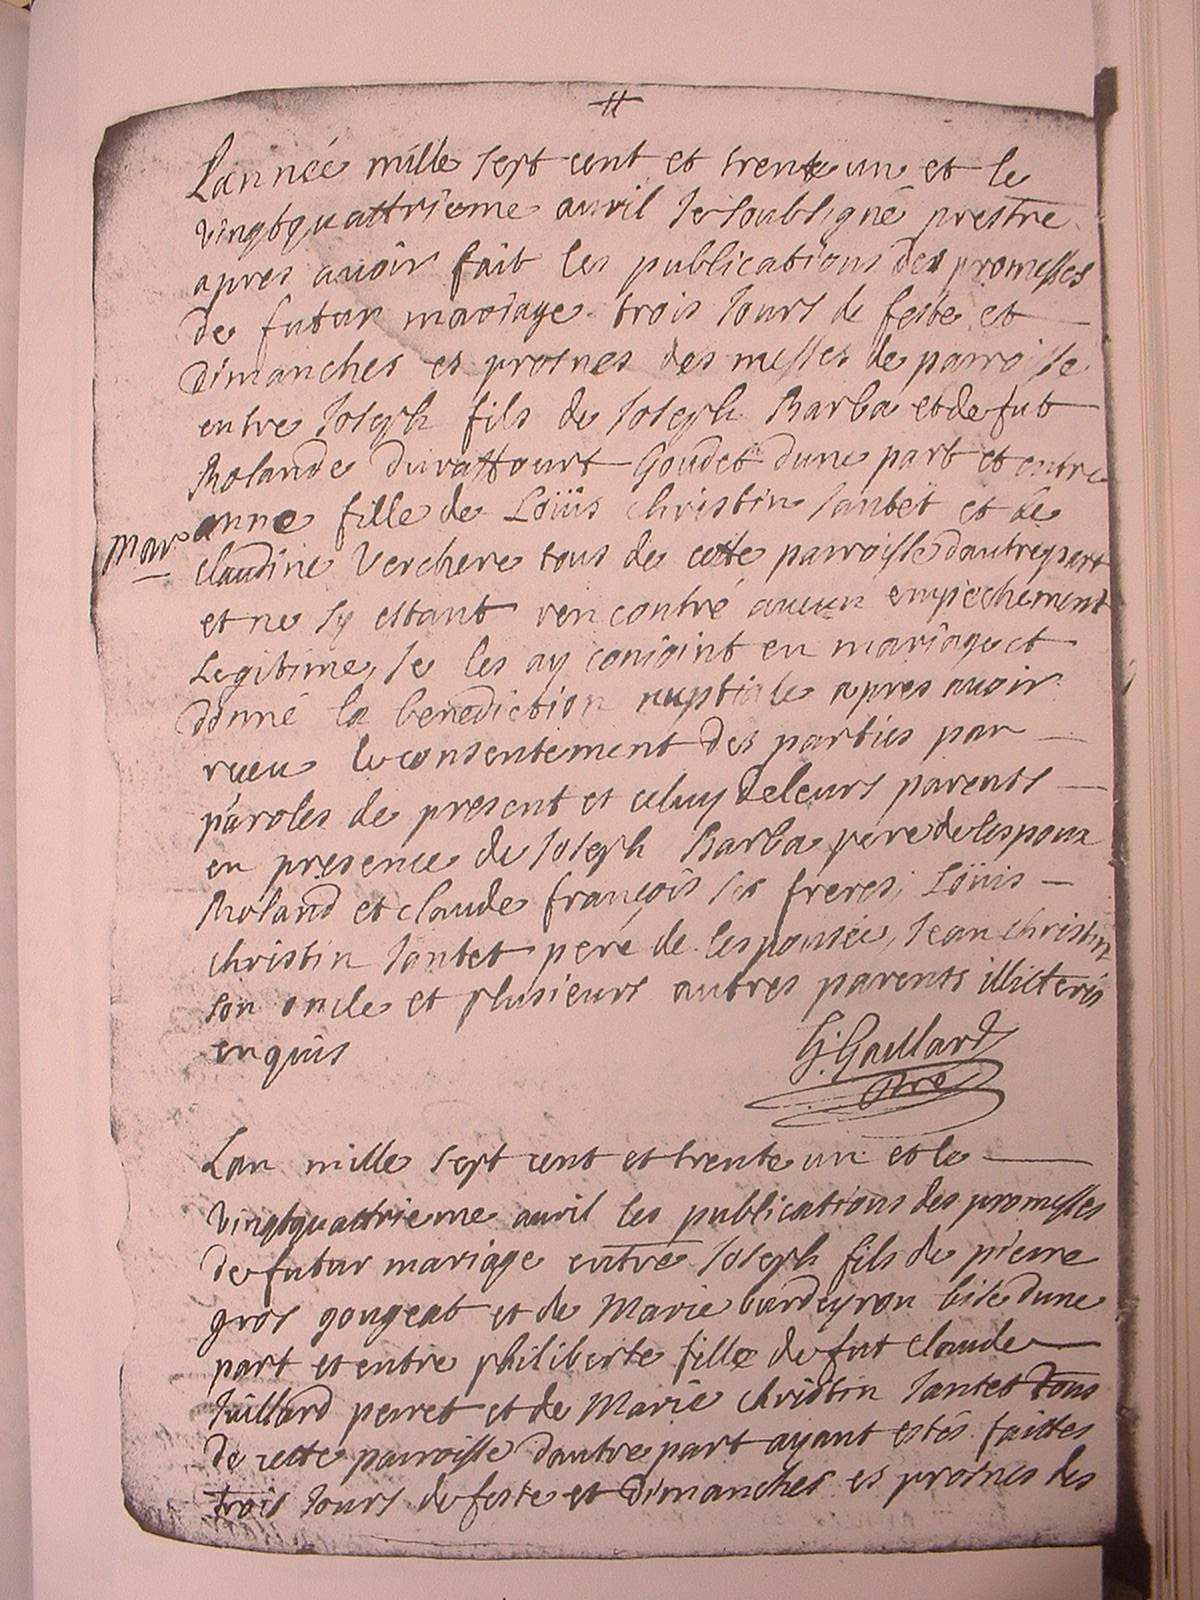 Lannée mille sept cent et trente un et le
vingtquattrieme auril Je soubsigné prestre
apres auoir fait les publications des promesses
de futur mariage trois Jours de feste et
Dimanches es prosnes des messes de parroisse
entre Joseph fils de Joseph Barba et de fut
Rolande Duraffourt Goudet dune part et entre
anne fille de Loüis christin Jantet et de
Mar
claudine Verchere tous de cette parroisse dautre part
et ne sy estant rencontré aucun empechement
Legitime, Je les ay conioint en mariage et
donné la benediction nuptiale apres auoir
receu le consentement des parties par
paroles de present et celuy de leurs parents
en presence de Joseph Barba pere de lespoux
Roland et claude françois ses freres, Loüis
christin Jantet pere de lespousée, Jean christin
son oncle et plusieurs autres parents illiterés
enquis
G. Gaillard
Lan mille sept cent et trente un et le
vingtquattrieme auril les publications des promesses
de futur mariage entre Joseph fils de pierre
gros gougeat et de Marie burdeyron bise dune
part et entre philiberte fille de fut claude
Juillard perret et de Marie christin Jantet tous
de cette parroisse dautre part ayant estés faittes
trois Jours de feste et Dimanches es prosnes des